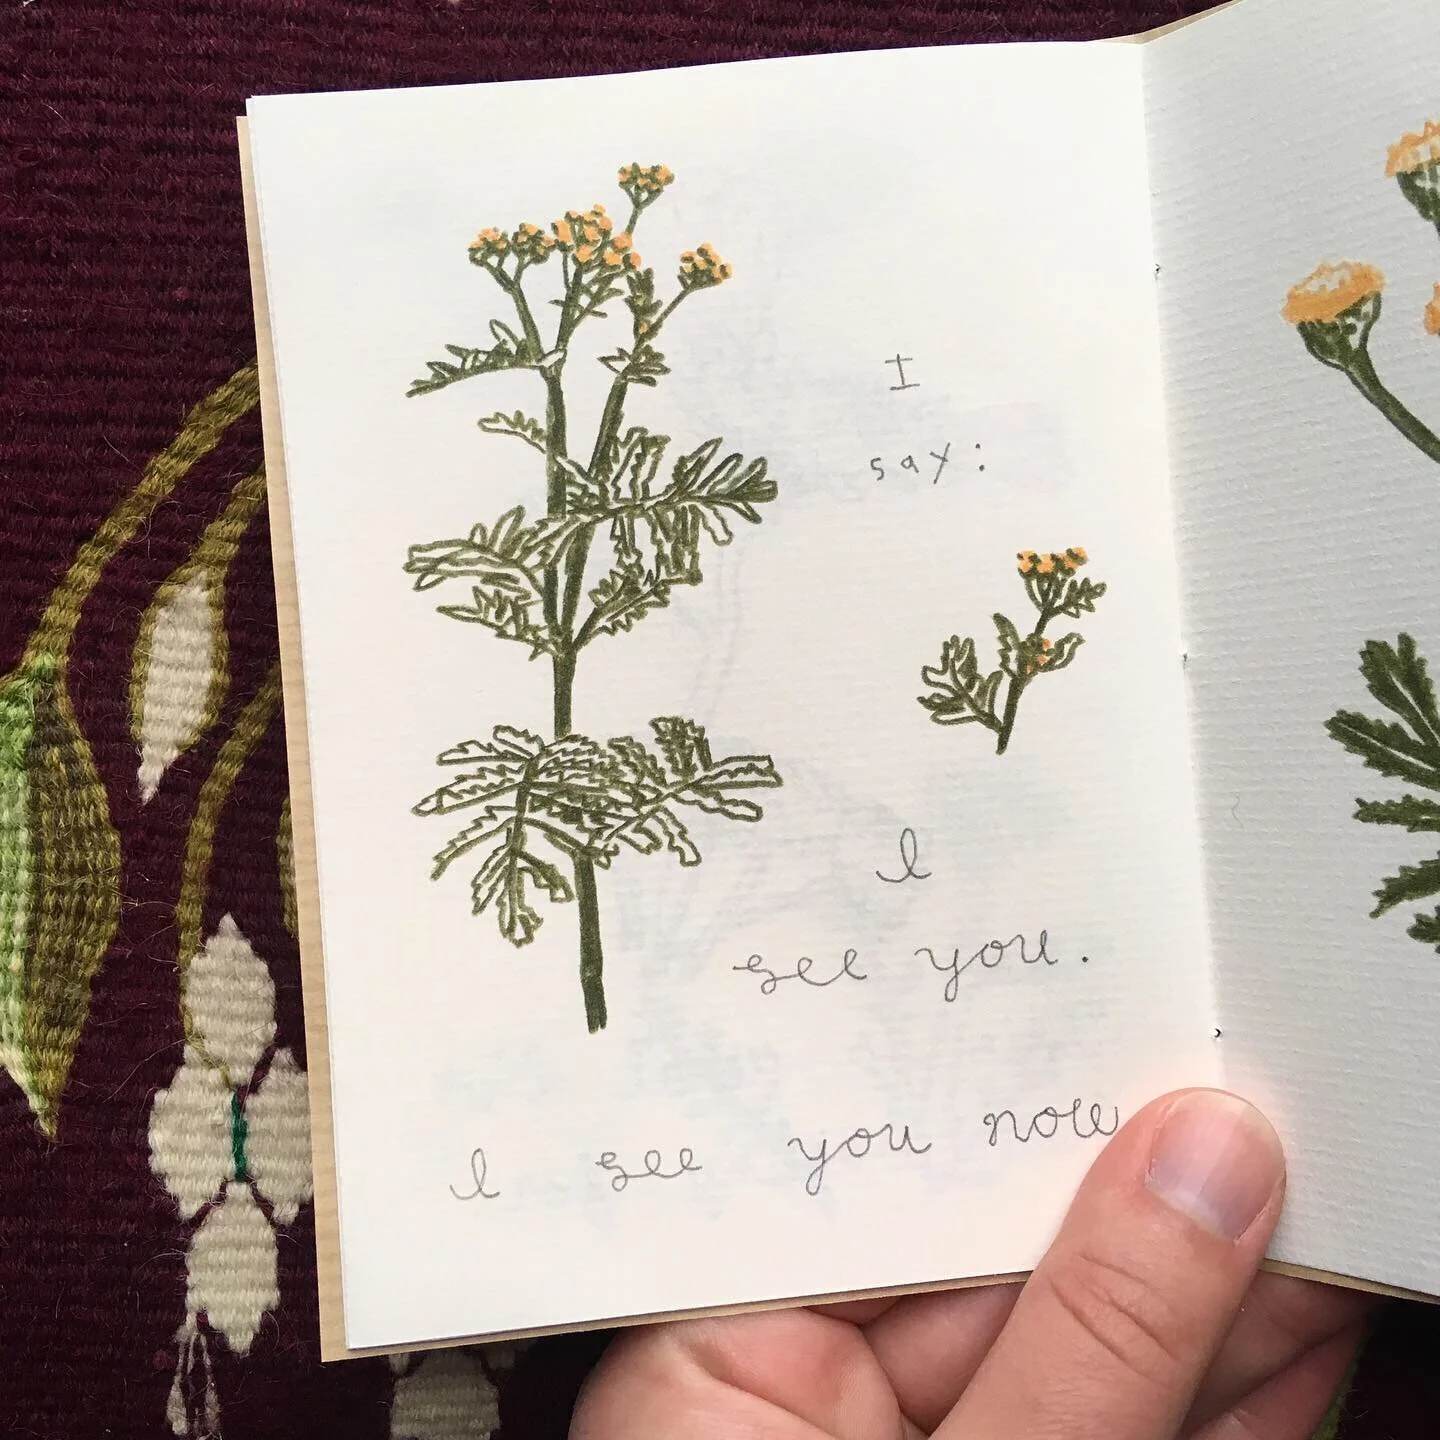 I
say:
I
see you.
I see you now